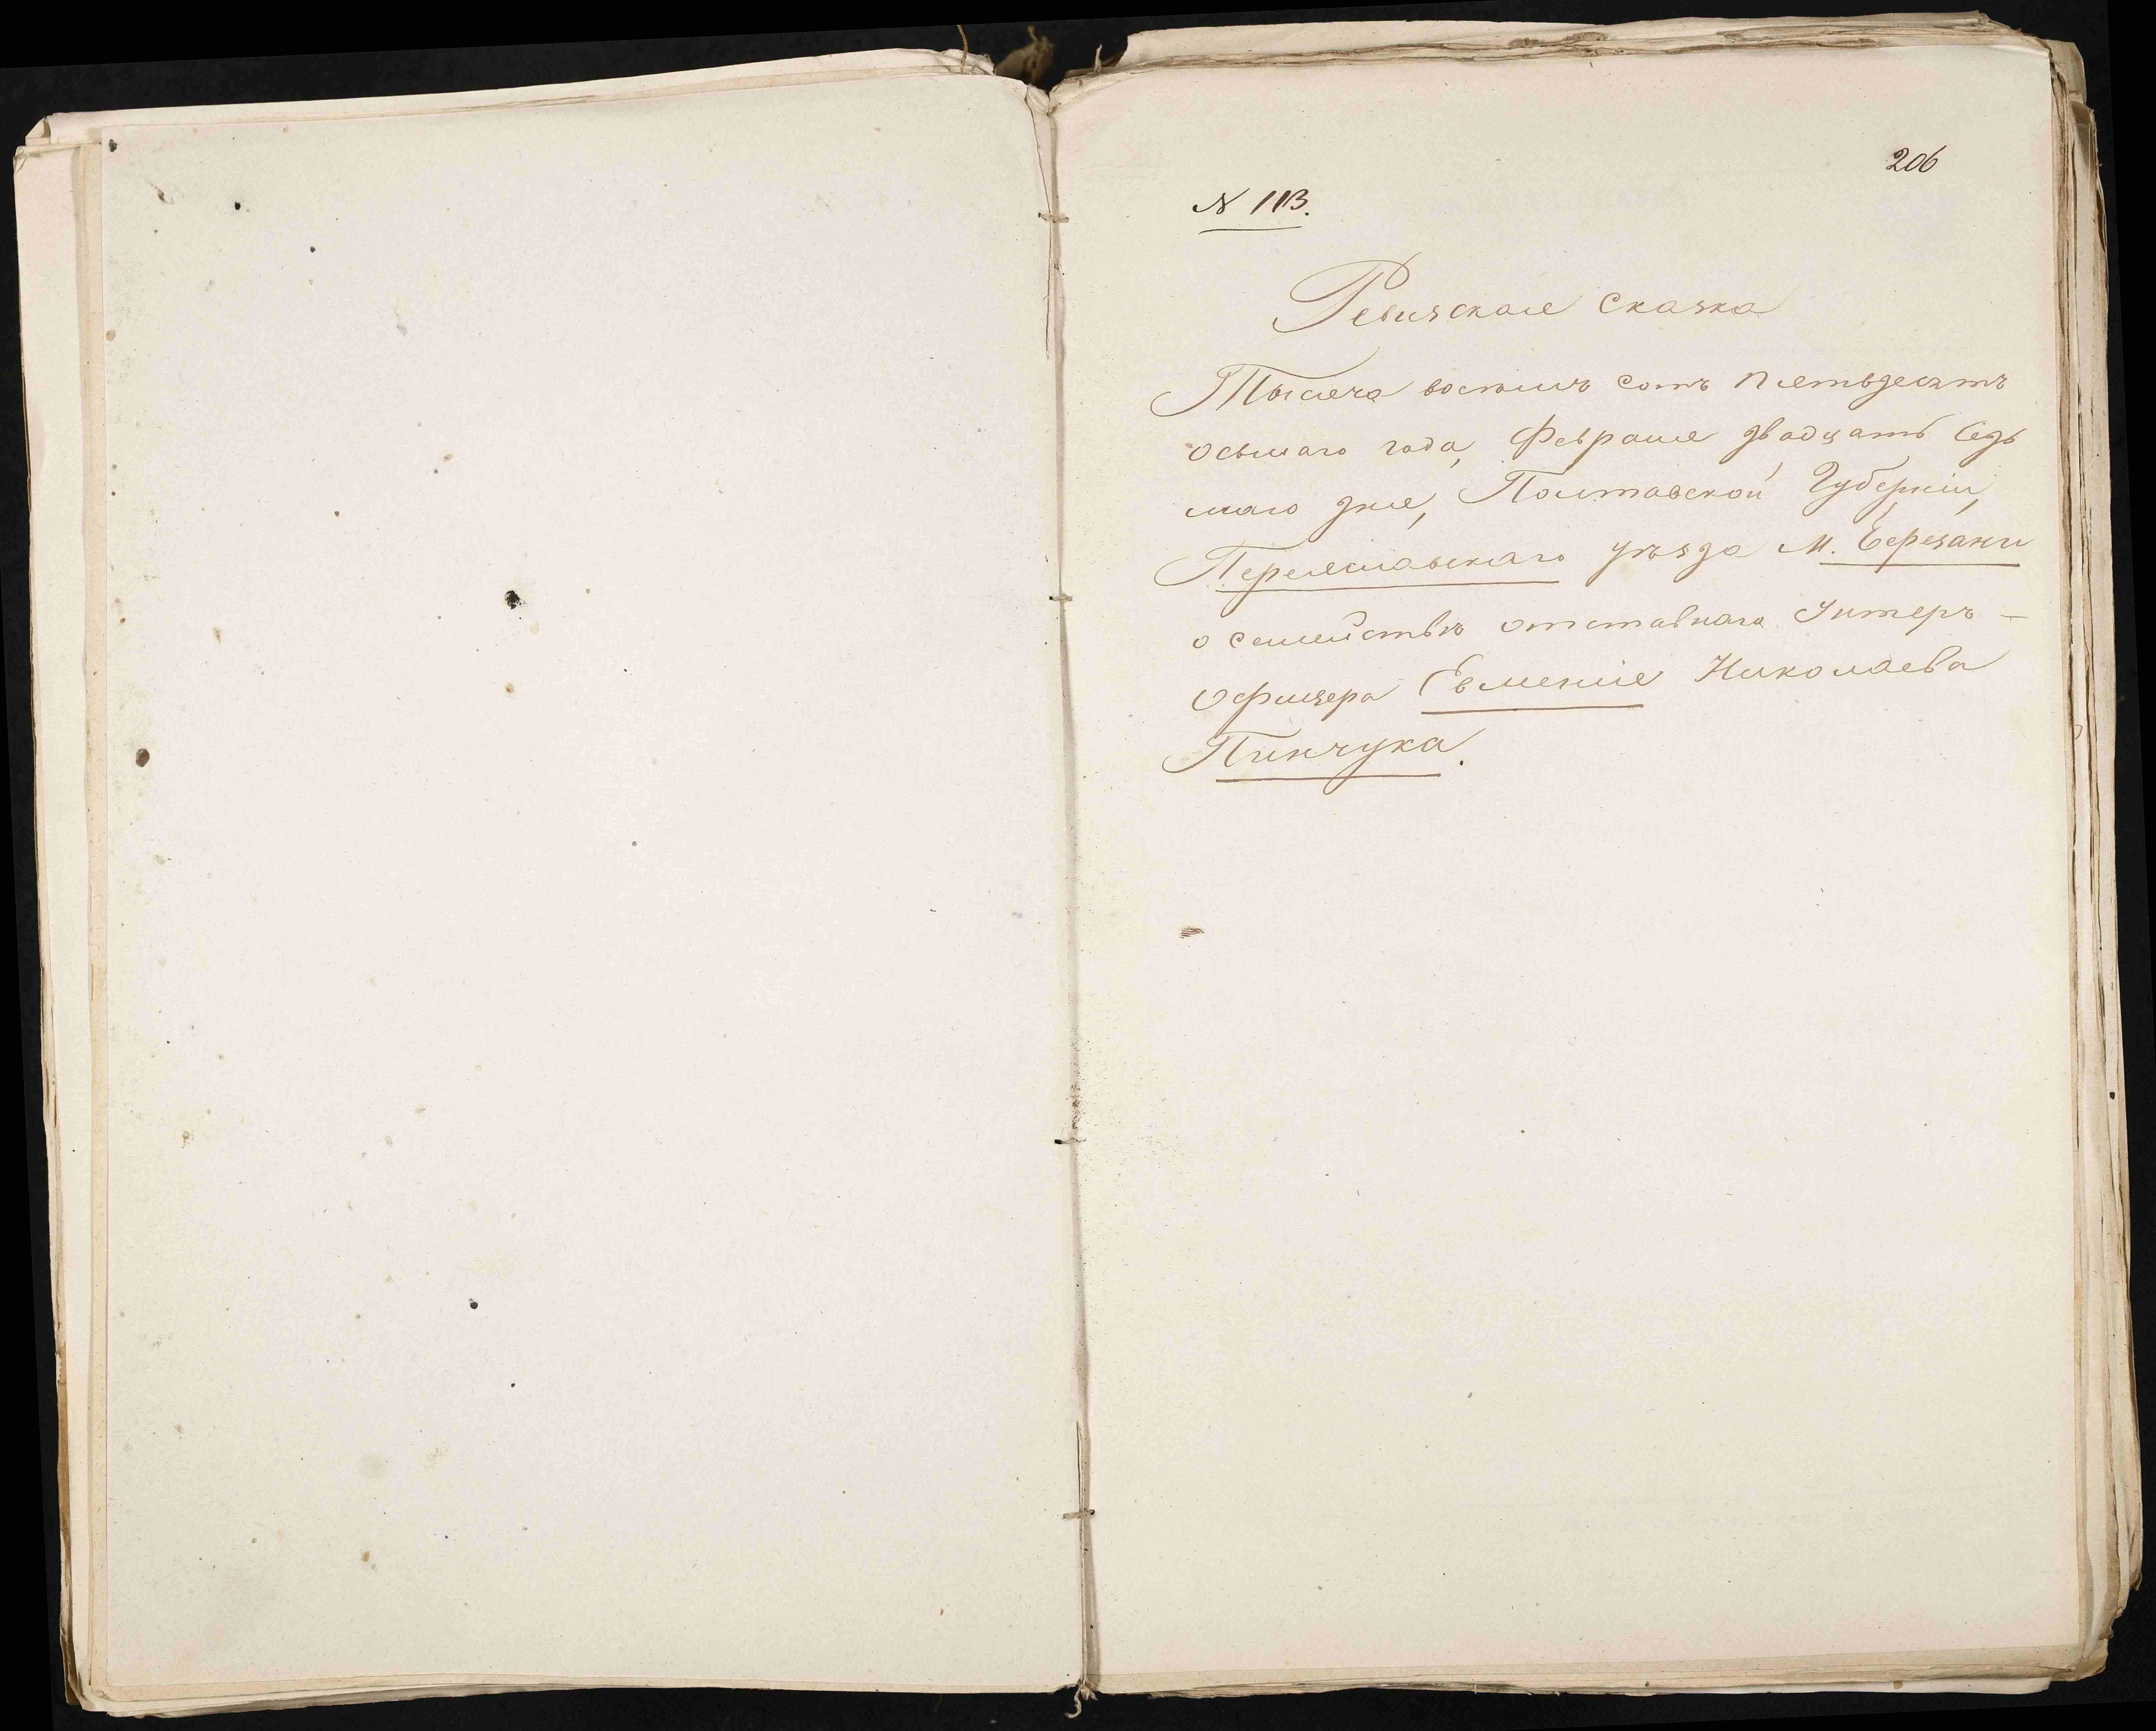 206
N 113.
Ревизская сказка
Тысяча восемь сотъ пятьдесятъ
осьмаго года, Февраля двадцать седь
маго дня, Полтавской Губерніи,
Переяславскаго уѣзда М. Березани
о семействѣ отставнаго Унтеръ -
офицера Евменія Николаева
Пинчука.